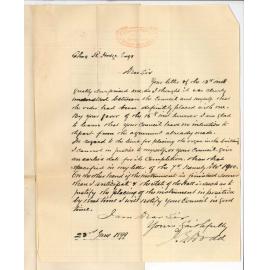 Chas. R. Hodge Esqr
Dear Sir
Your letter of the 13th inst
greatly surprised me, as I thought it was clearly
understood between the Council and myself that
the order had been definitely placed with me.
By your favor of the 16th inst however I am glad
to learn that your Council have no intention to
depart from the agreement already made.
In regard to the time for placing the organ in the building
I cannot in justice to myself, or your Council, give
an earlier date for its completion than that
specified in my letter of the 7th
On the other hand if the instrument is finished sooner
than I anticipate & the state of the hall is such as to
justify the placing of the instrument in position
by that time I will notify your Council in good
time.
I am Dear Sir,
Yours faithfully
22nd June 1899